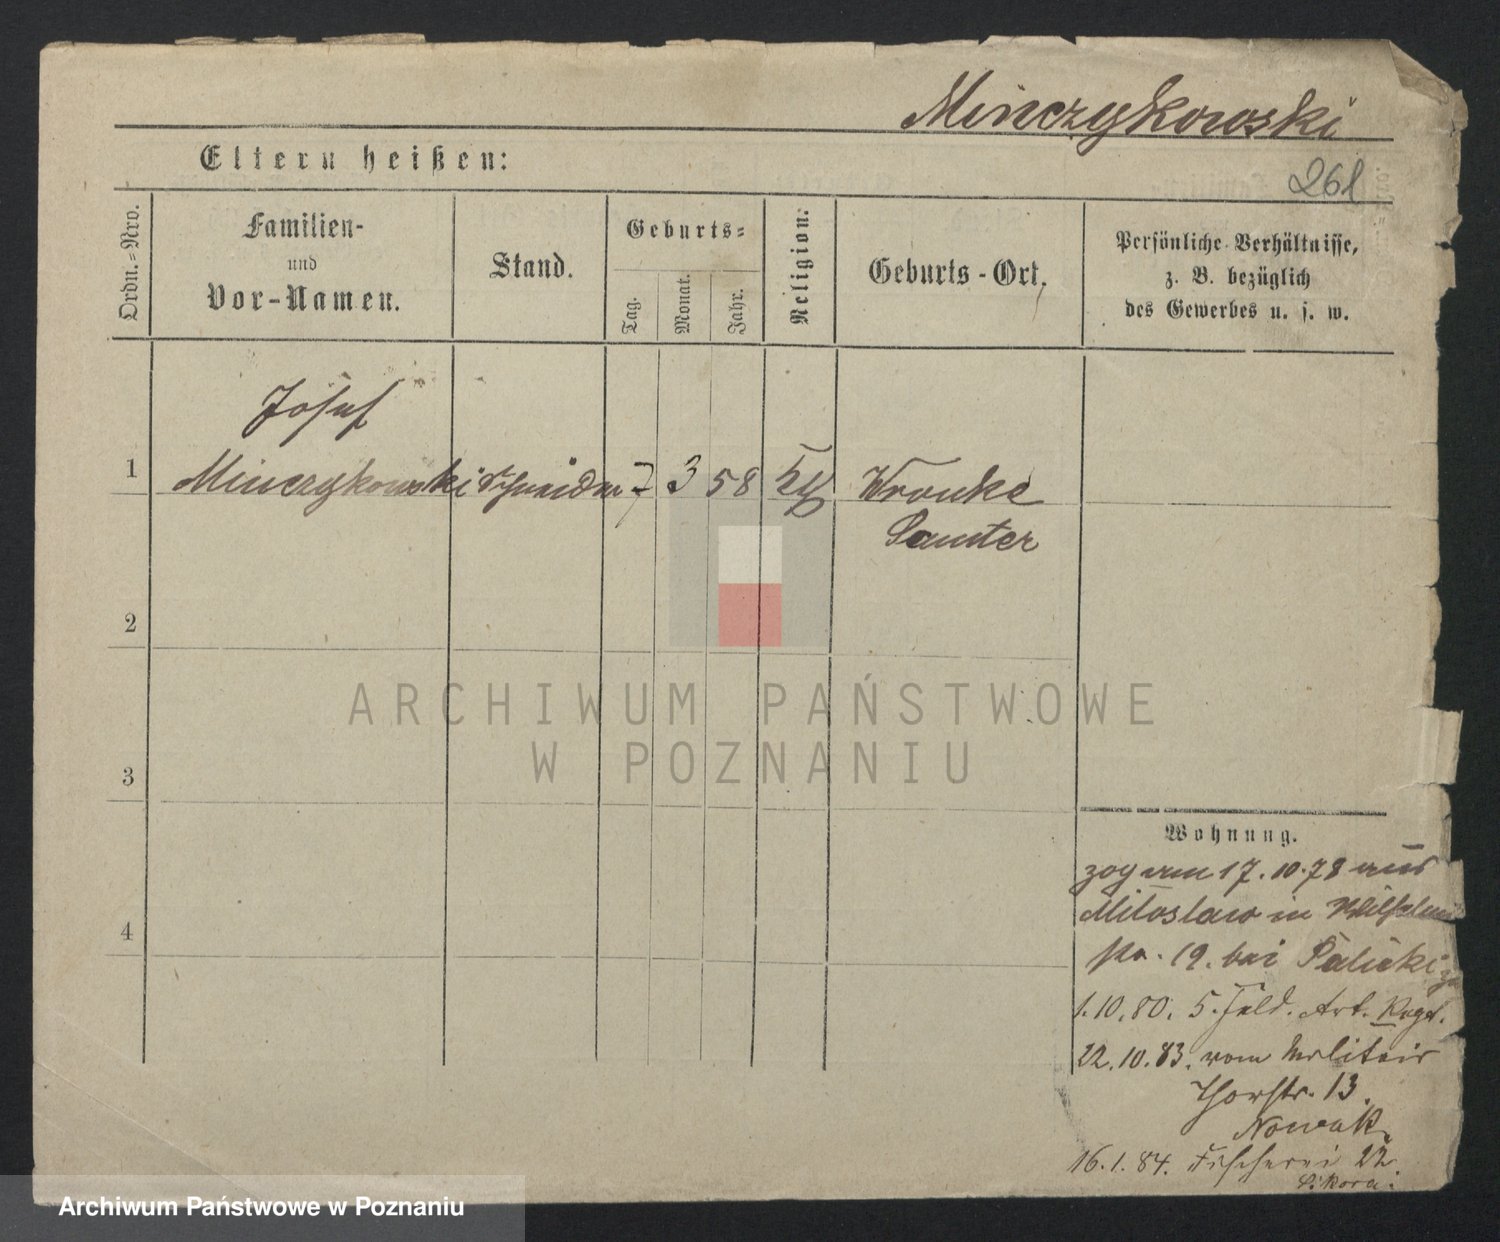 Minczykowski
Eltern heißen:
261
Ordn.-Nro.
Familien-
und
Vor-Namen.
Stand.
Geburts-
Tag.
Monat.
Jahr.
Religion.
Geburts-Ort.
Persönliche Verhältnisse,
z. B. bezüglich
des Gewerbes u. s. w.
Josef
1 Minczykowski Schneider 7 3 58 Wronke
Samter
2
ARCHIWUM PAŃSTWOWE
W POZNANIU
3
Wohnung.
zog am 17.10.78 aus
Miloslaw in
4
19. bei Palicki
1.10.80. 5. Feld. Art. Regt.
22.10.83. vom Militair
Thorstr. 13.
Nowak.
16.1.84. Fischerei 22.
Sikora.
Archiwum Państwowe w Poznaniu